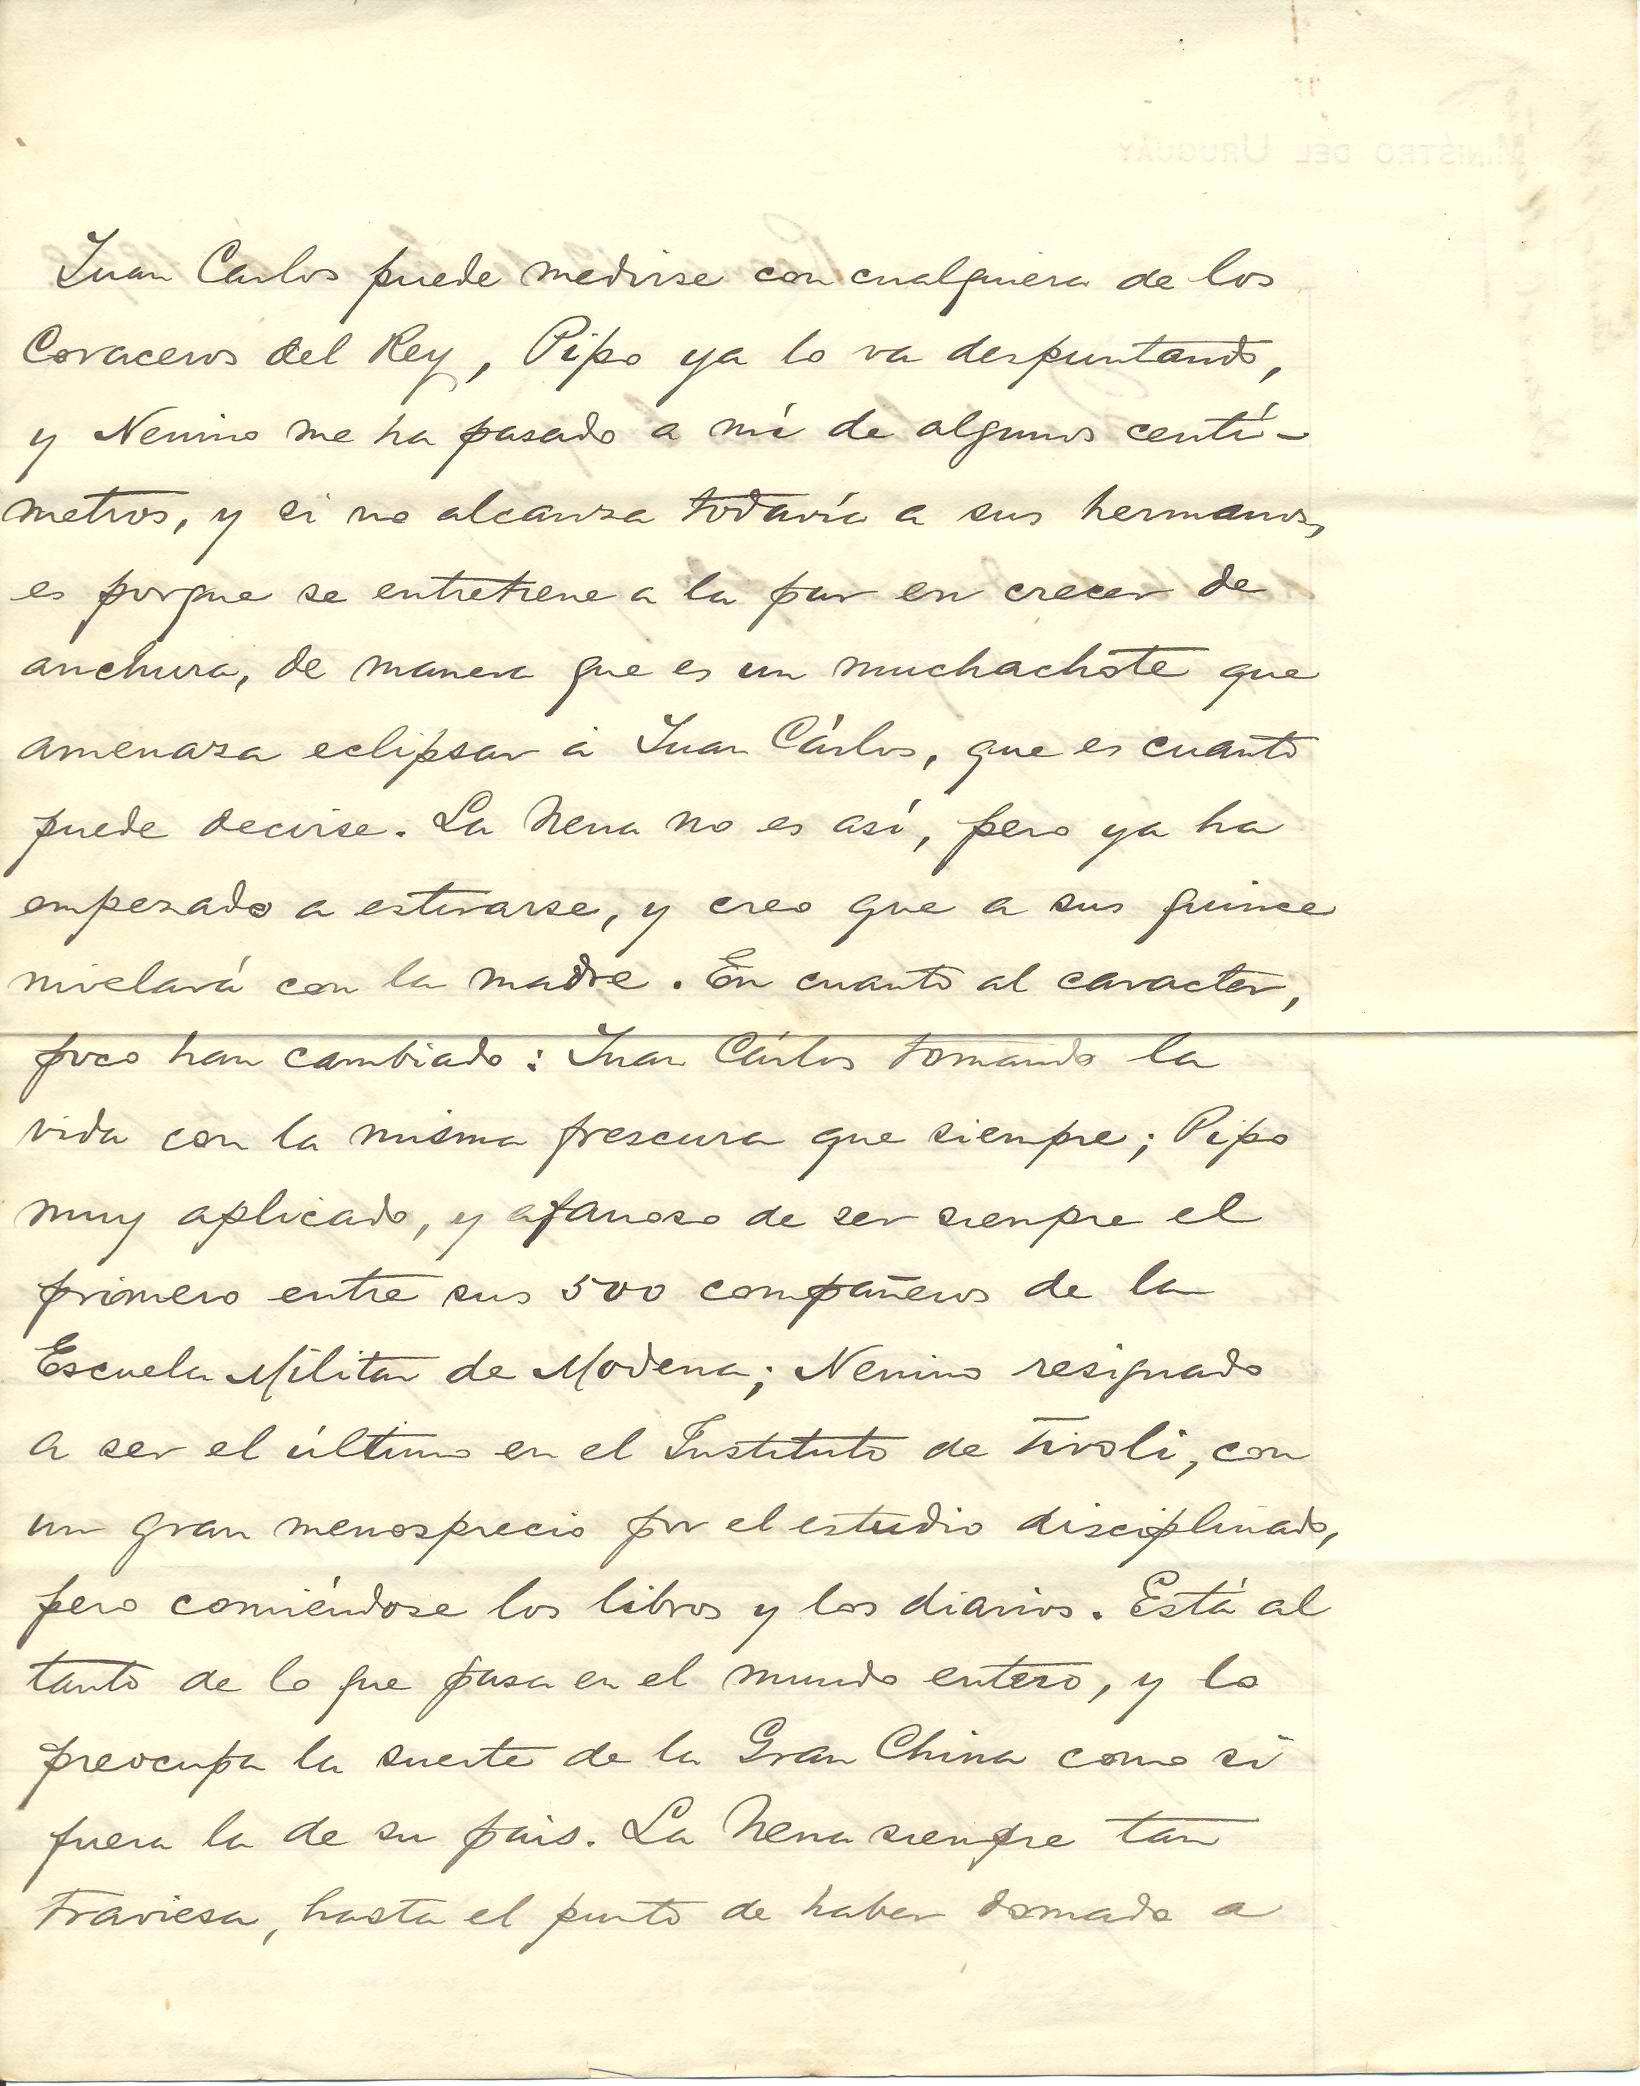 MINISTRO DEL URUGUAY
Juan Carlos puede medirse con cualquiera de los
Coraceros del Rey, Pipo ya lo va despuntando,
y Nenino me ha pasado a mí de algunos centí-
metros, y si no alcanza todavía a sus hermanos,
es porque se entretiene a la par en crecer de
anchura, de manera que es un muchachote que
amenaza eclipsar á Juan Cárlos, que es cuanto
puede decirse. La Nena no es así, pero ya ha
empezado a estirarse, y creo que a sus quince
nivelará con la madre. En cuanto al caracter,
poco han cambiado: Juan Cárlos tomando la
vida con la misma frescura que siempre; Pipo
muy aplicado, y afanoso de ser siempre el
primero entre sus 500 compañeros de la
Escuela Militar de Modena; Nenino resignado
a ser el último en el Instituto de Tivoli, con
un gran menosprecio por el estudio disciplinado,
pero comiéndose los libros y los diarios. Está al
tanto de lo que pasa en el mundo entero, y lo
preocupa la suerte de la Gran China como si
fuera la de su pais. La Nena siempre tan
traviesa, hasta el punto de haber domado a